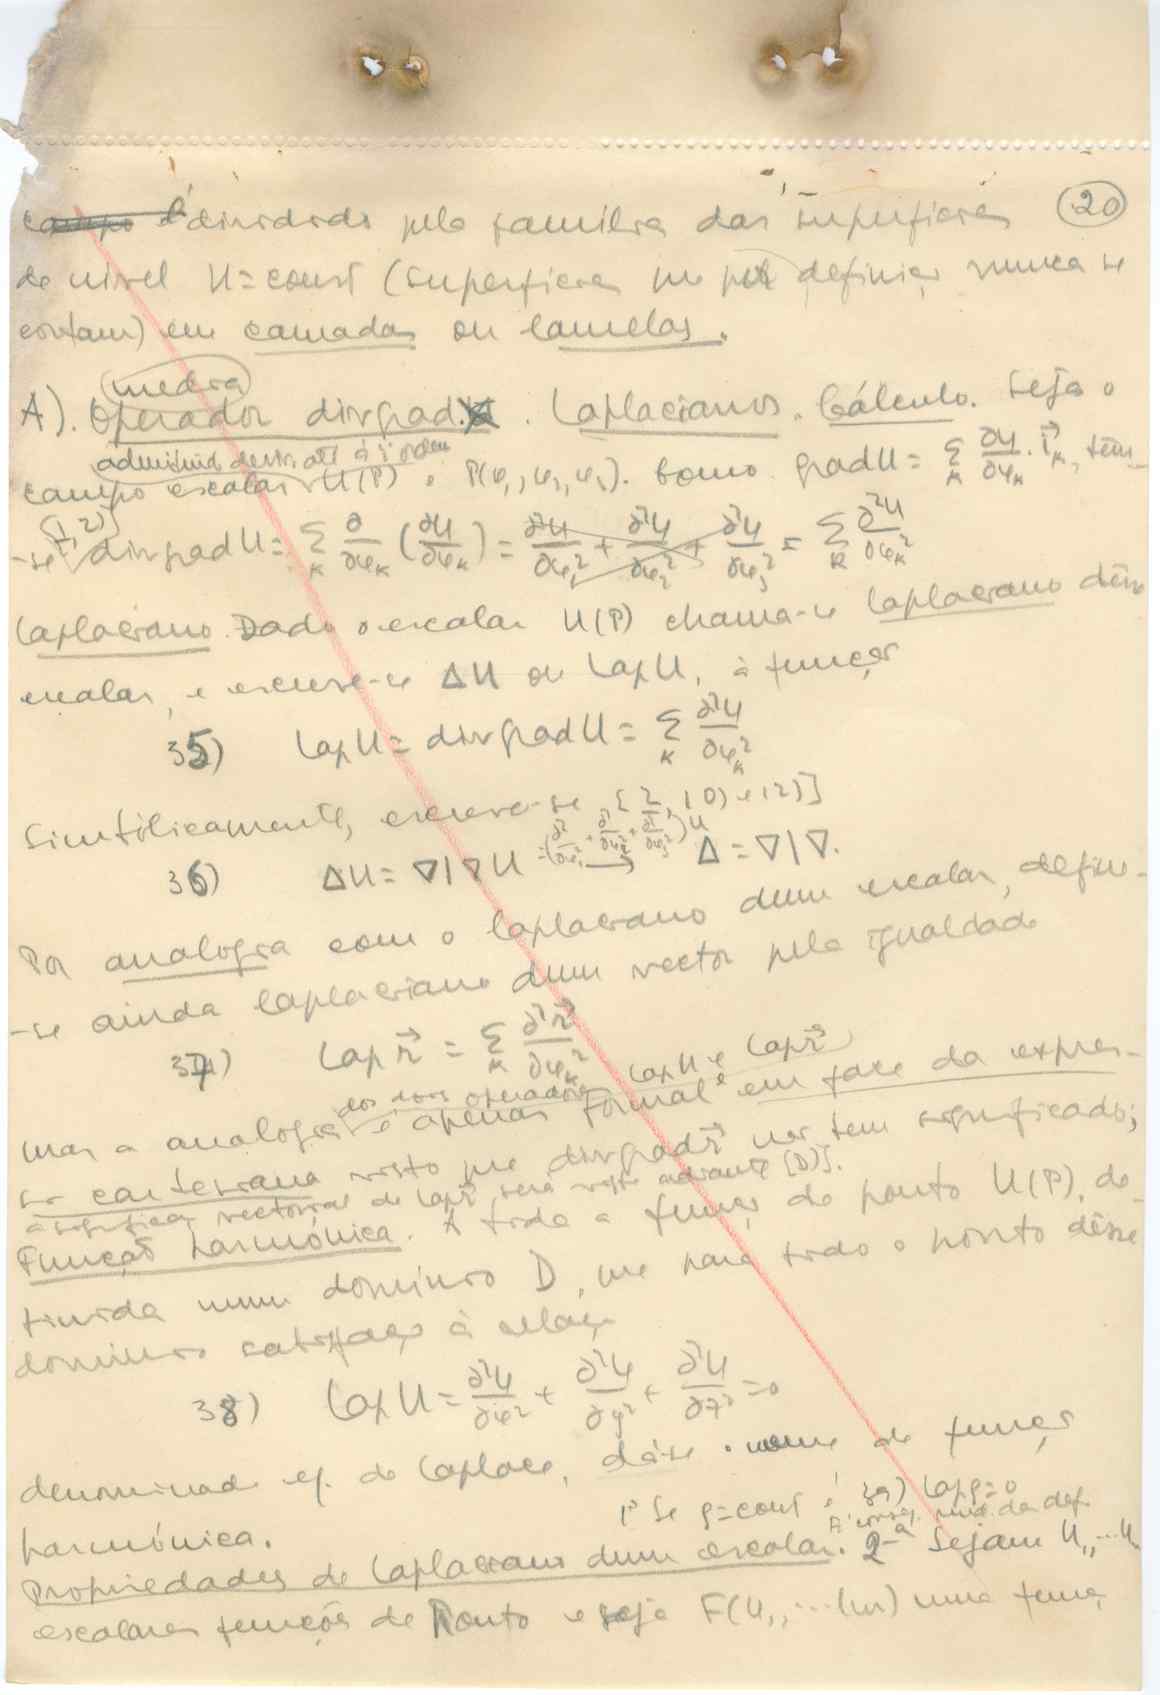 campo é dividido pela família das superfícies (20)
de nível U=const (superfícies que por definição nunca se
cortam) em camadas ou lamelas.
media
A). Operador divgrad. Laplacianos. Cálculo. Seja o
admitindo deriv. até à 2ª ordem
campo escalar U(P) e P(φ₁,φ₂,φ₃). Como gradU = Σ_K ∂U/∂φ_K · i⃗_K, tem-
{1,2)}
-se divgradU = Σ_K ∂/∂φ_K (∂U/∂φ_K) = ∂²U/∂φ₁² + ∂²U/∂φ₂² + ∂²U/∂φ₃² = Σ_K ∂²U/∂φ_K²
Laplaciano. Dado o escalar U(P) chama-se laplaciano dêsse
escalar, e escreve-se ΔU ou LapU, à função
35) LapU = divgradU = Σ_K ∂²U/∂φ_K²
Simbòlicamente, escreve-se [2, 10) e 12)]
36) ΔU = ∇|∇U =(∂²/∂φ₁² + ∂²/∂φ₂² + ∂²/∂φ₃²)U → Δ = ∇|∇.
Por analogia com o laplaciano dum escalar, define-
-se ainda laplaciano dum vector pela igualdade
37) Lap r⃗ = Σ_K ∂²r⃗/∂φ_K²
dos dois operadores LapU e Lap r⃗
mas a analogia é apenas formal e em face da expres-
são cartesiana visto que divgrad r⃗ não tem significado;
a significação vectorial de Lap r⃗ será vista adiante [D)].
Função harmónica. A toda a função do ponto U(P), de-
finida num domínio D, que para todo o ponto dêsse
domínio satisfaça à relação
38) LapU = ∂²U/∂φ² + ∂²U/∂y² + ∂²U/∂z² = 0
denominada eq. de Laplace, dá-se o nome de função
harmónica. 1ª Se ρ=const é 39) Lapρ=0
É conseq. imed. da def.
Propriedades do Laplaciano dum escalar. 2ª Sejam U₁,...Uₙ
escalares funções de Ponto e seja F(U₁,...Uₙ) uma função